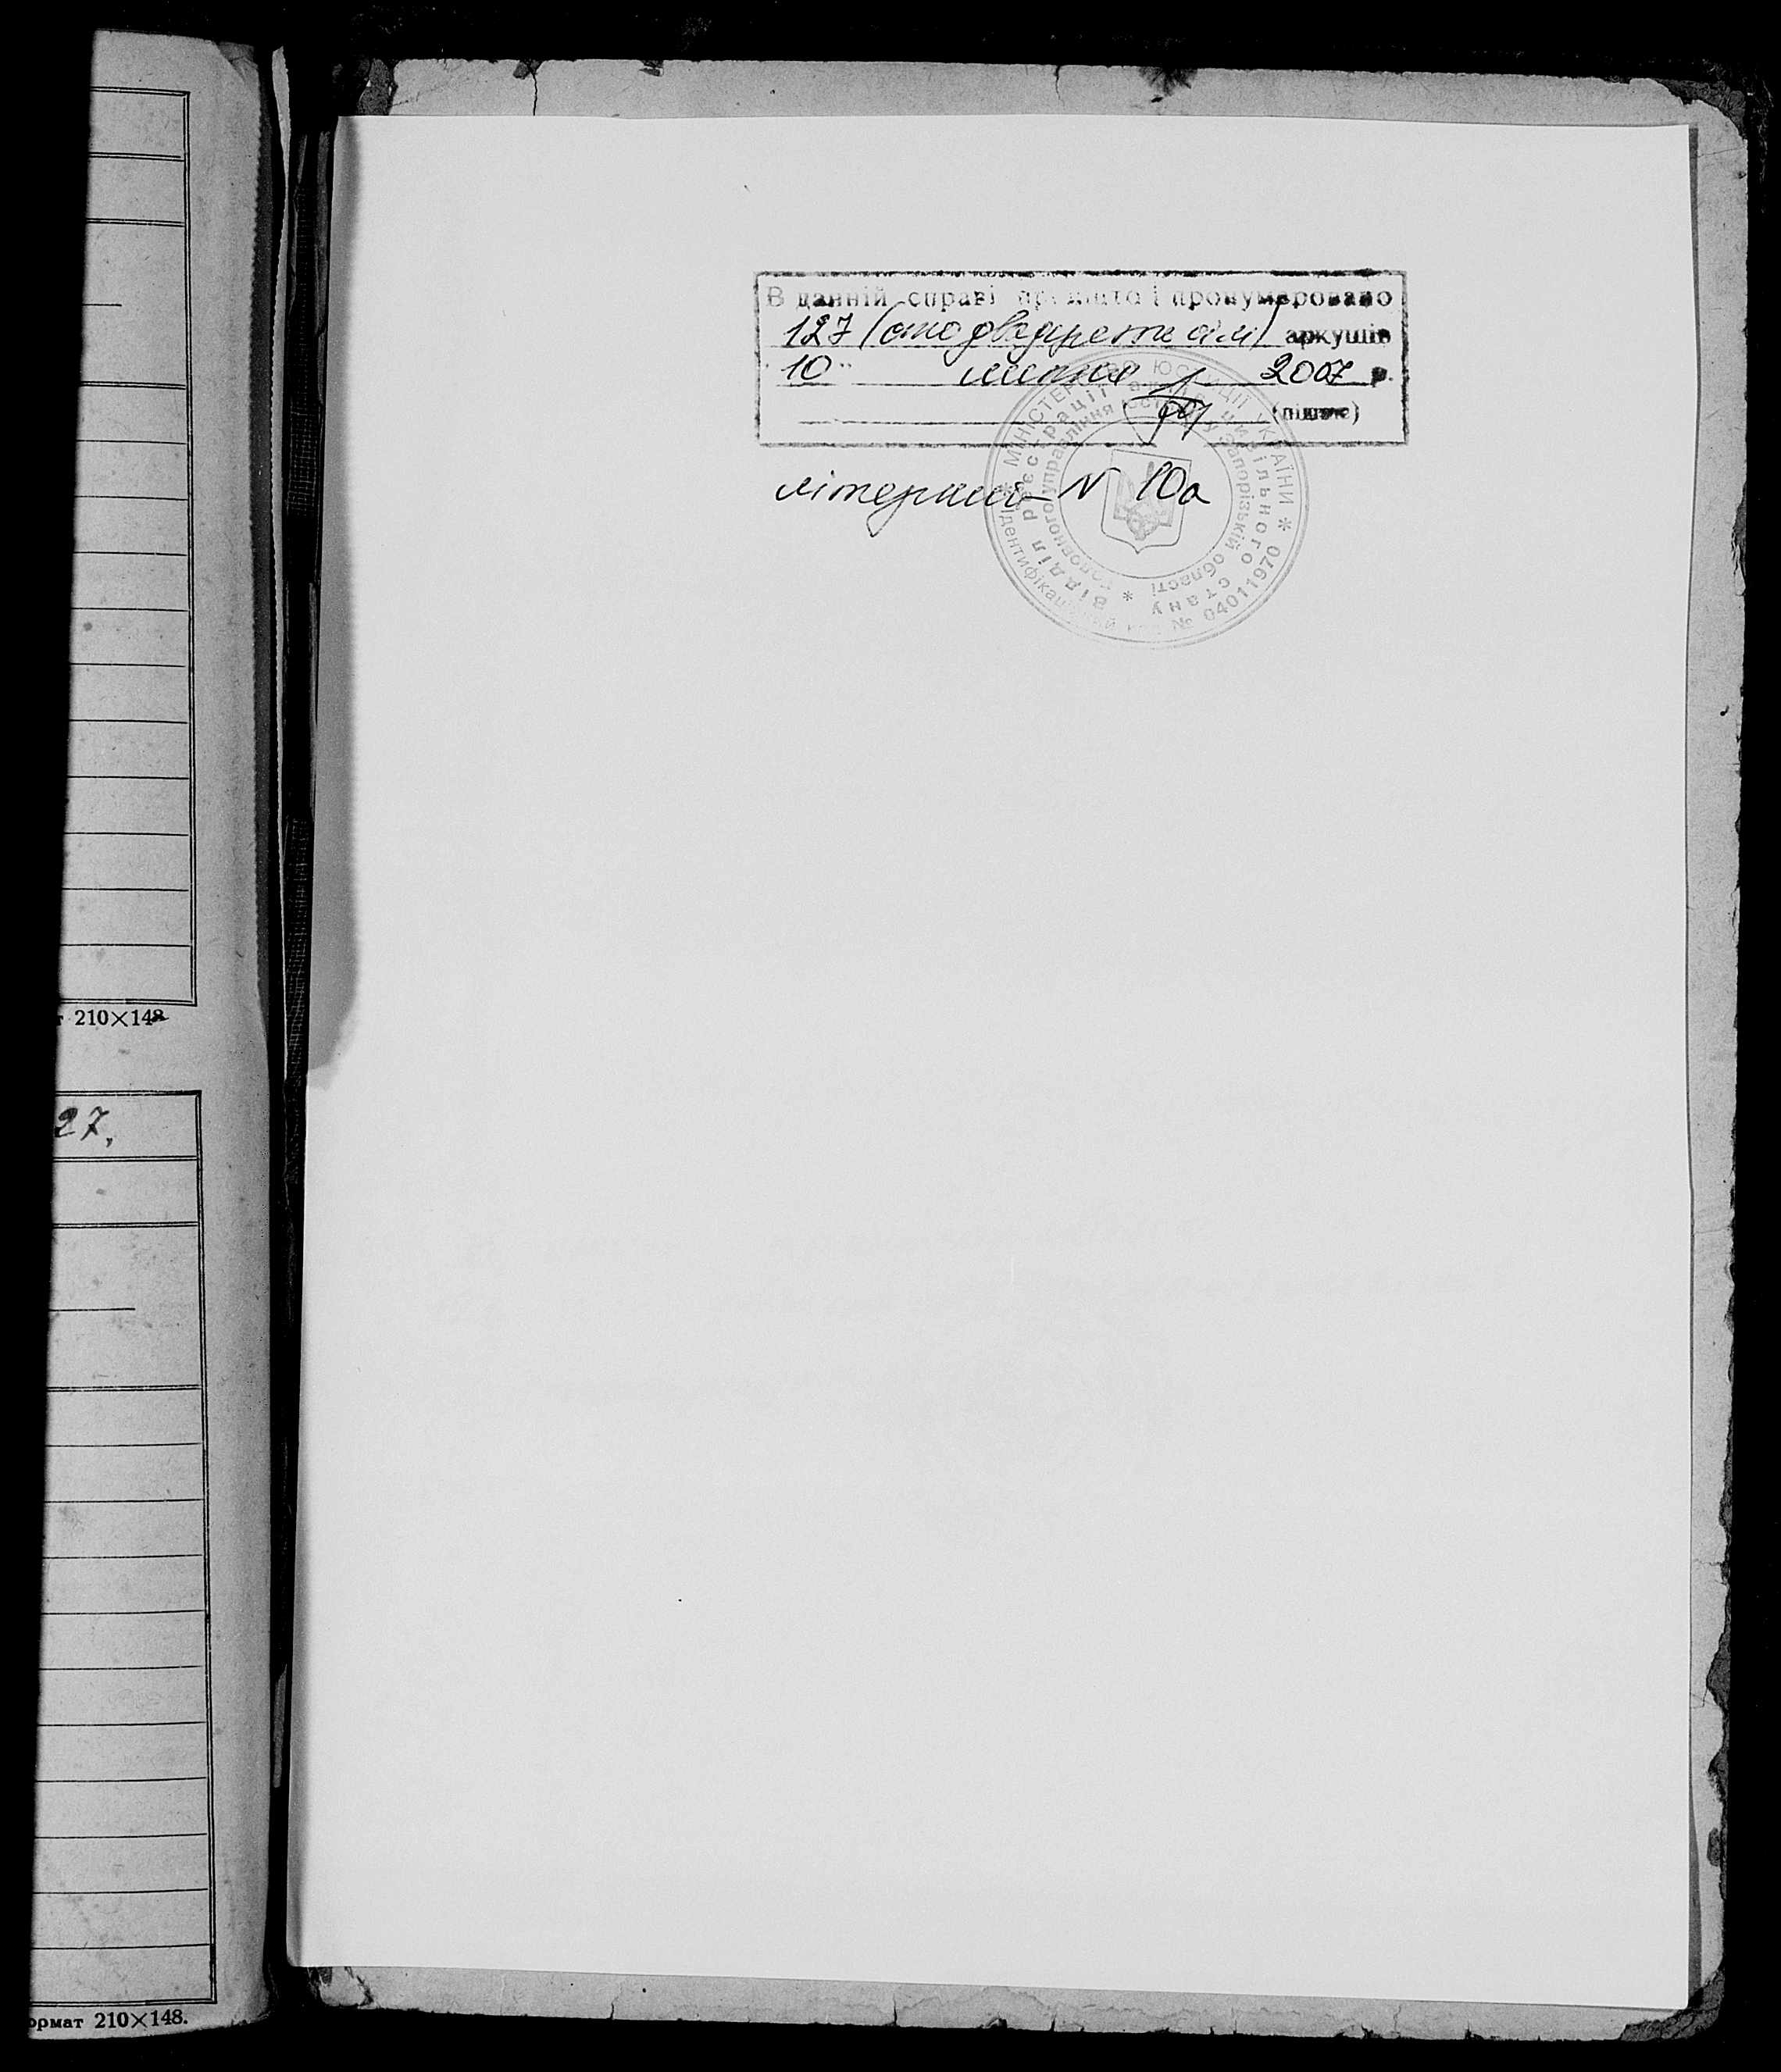 т 210×148
27.
формат 210×148.
В данній справі прошито і пронумеровано
127 (сто двадцять сім) аркушів
10 " липня 2007 р.
(підпис)
літерний N 10а
МІНІСТЕРСТВО ЮСТИЦІЇ УКРАЇНИ * Ідентифікаційний код № 04011970 *
Відділ реєстрації актів цивільного стану
Головного управління юстиції у Запорізькій області *